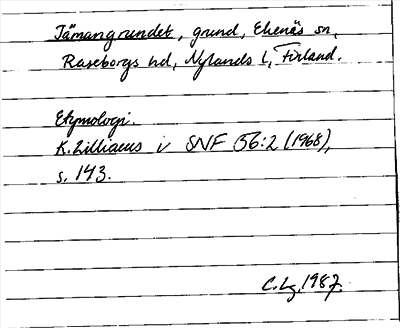 Tämangrundet, grund, Ekenäs sn,
Raseborgs hd, Nylands l, Finland.
Etymologi.
K. Zilliacus i SNF 56:2 (1968),
s. 143.
C. Lg. 1987.